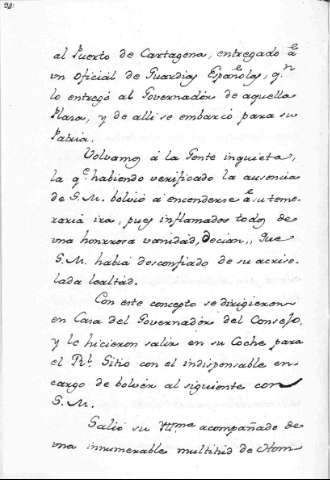 al Puerto de Cartagena, entregado à
un Oficial de Guardias Españolas, qn
lo entregó al Governador de aquella
Plaza, y de alli se embarcó para su
Patria.
Volvamos á la Gente inquieta,
la qe habiendo verificado la ausencia
de S.M. bolvió à encenderse su teme-
raria ira, pues inflamados todos de
una honrrosa vanidad, decian,, Que
S.M. habia desconfiado de su acriso-
lada lealtad.
Con este concepto se dirigieron
en Casa del Governador del Consejo,
y le hicieron salir en su Coche para
el Rl. Sitio con el indispensable en-
cargo de bolver al siguiente con
S.M.
Salió su Ytma acompañado de
una innumerable multitud de Hom-